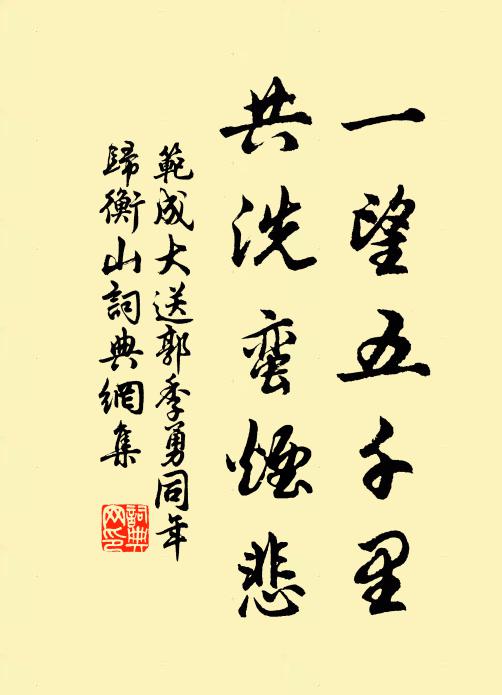 一望五千里
共洗蛮煙悲
範成大送郭季勇同年
歸衡山詞典網集
詞典
网印